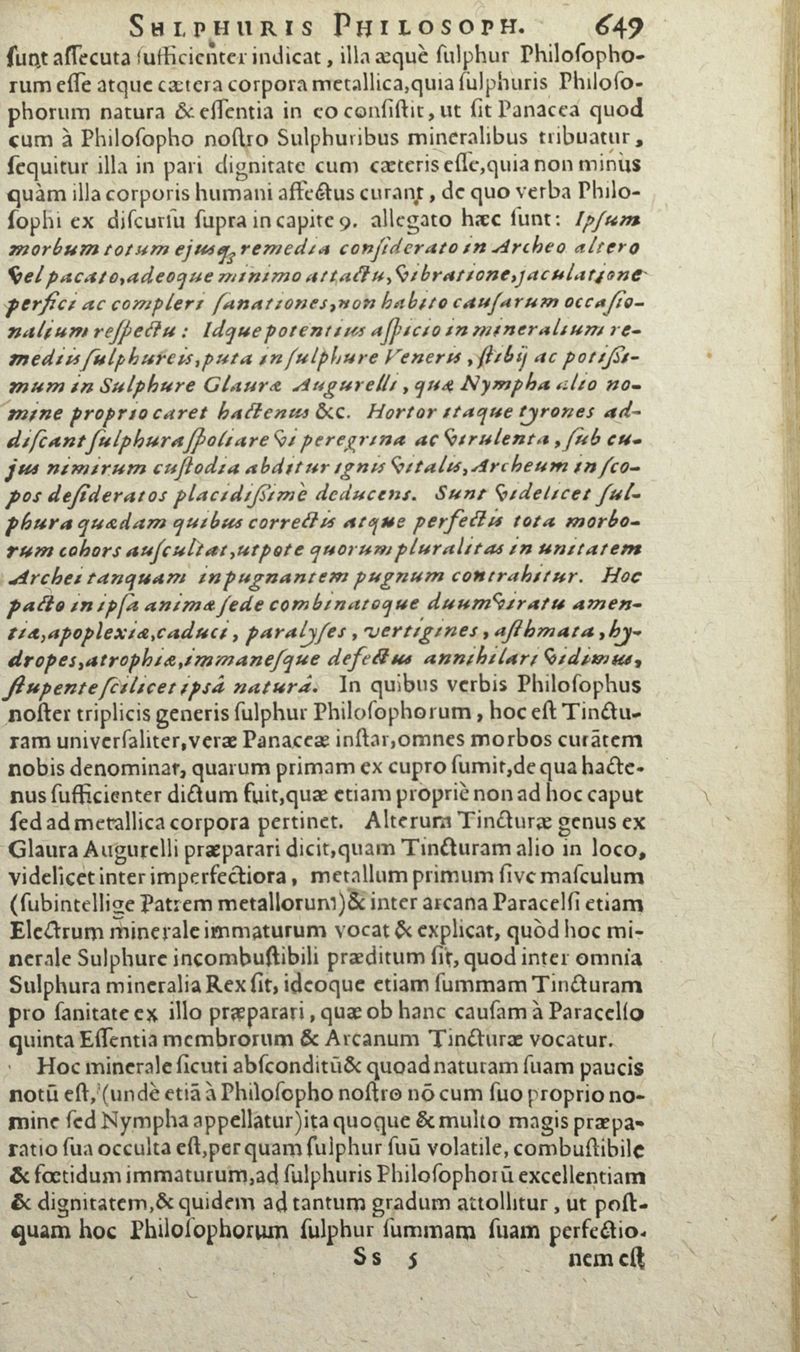 SULPHURIS PHILOSOPH. 649
ſunt aſſecuta ſufficienter indicat, illa æquè ſulphur Philoſopho-
rum eſſe atque cætera corpora metallica, quia ſulphuris Philoſo-
phorum natura & eſſentia in eo conſiſtit, ut ſit Panacea quod
cum à Philoſopho noſtro Sulphuribus mineralibus tribuatur,
ſequitur illa in pari dignitate cum cæteris eſſe, quia non minùs
quàm illa corporis humani affectus curant, de quo verba Philo-
ſophi ex diſcurſu ſupra in capite 9. allegato hæc ſunt: Ipſum
morbum totum ejusq; remedia conſiderato in Archeo altero
vel pacato, adeoque minimo attactu, vibratione, jaculatione
perfici ac compleri ſanationes, non habito cauſarum occaſio-
nalium reſpectu: Idque potentius aſpicio in mineralium re-
mediis ſulphureis, puta in ſulphure Veneris, ſtibij ac potiſsi-
mum in Sulphure Glauræ Augurelli, quæ Nympha alio no-
mine proprio caret hactenus &c. Hortor itaque tyrones ad-
diſcant ſulphura ſpoliare vi peregrina ac virulenta, ſub cu-
jus nimirum cuſtodia abditur ignis vitalis, Archeum in ſco-
pos deſideratos placidiſsimè deducens. Sunt videlicet ſul-
phura quædam quibus correctis atque perfectis tota morbo-
rum cohors auſcultat, utpote quorum pluralitas in unitatem
Archei tanquam in pugnantem pugnum contrahitur. Hoc
pacto in ipſa animæ ſede combinatoque duumviratu amen-
tiæ, apoplexiæ, caduci, paralyſes, vertigines, aſthmata, hy-
dropes, atrophiæ, immaneſque defectus annihilari vidimus,
ſtupente ſcilicet ipsâ naturâ. In quibus verbis Philoſophus
noſter triplicis generis ſulphur Philoſophorum, hoc eſt Tinctu-
ram univerſaliter, veræ Panaceæ inſtar, omnes morbos curātem
nobis denominat, quarum primam ex cupro ſumit, de qua hacte-
nus ſufficienter dictum fuit, quæ etiam propriè non ad hoc caput
ſed ad metallica corpora pertinet. Alterum Tincturæ genus ex
Glaura Augurelli præparari dicit, quam Tincturam alio in loco,
videlicet inter imperfectiora, metallum primum ſive maſculum
(ſubintellige Patrem metallorum) & inter arcana Paracelſi etiam
Electrum minerale immaturum vocat & explicat, quòd hoc mi-
nerale Sulphure incombuſtibili præditum ſit, quod inter omnia
Sulphura mineralia Rex ſit, ideoque etiam ſummam Tincturam
pro ſanitate ex illo præparari, quæ ob hanc cauſam à Paracelſo
quinta Eſſentia membrorum & Arcanum Tincturæ vocatur.
Hoc minerale ſicuti abſconditū & quoad naturam ſuam paucis
notū eſt, (unde etiā à Philoſopho noſtro nō cum ſuo proprio no-
mine ſed Nympha appellatur) ita quoque & multo magis præpa-
ratio ſua occulta eſt, per quam ſulphur ſuū volatile, combuſtibile
& fœtidum immaturum, ad ſulphuris Philoſophorū excellentiam
& dignitatem, & quidem ad tantum gradum attollitur, ut poſt-
quam hoc Philoſophorum ſulphur ſummam ſuam perfectio-
Ss 5 nem eſt